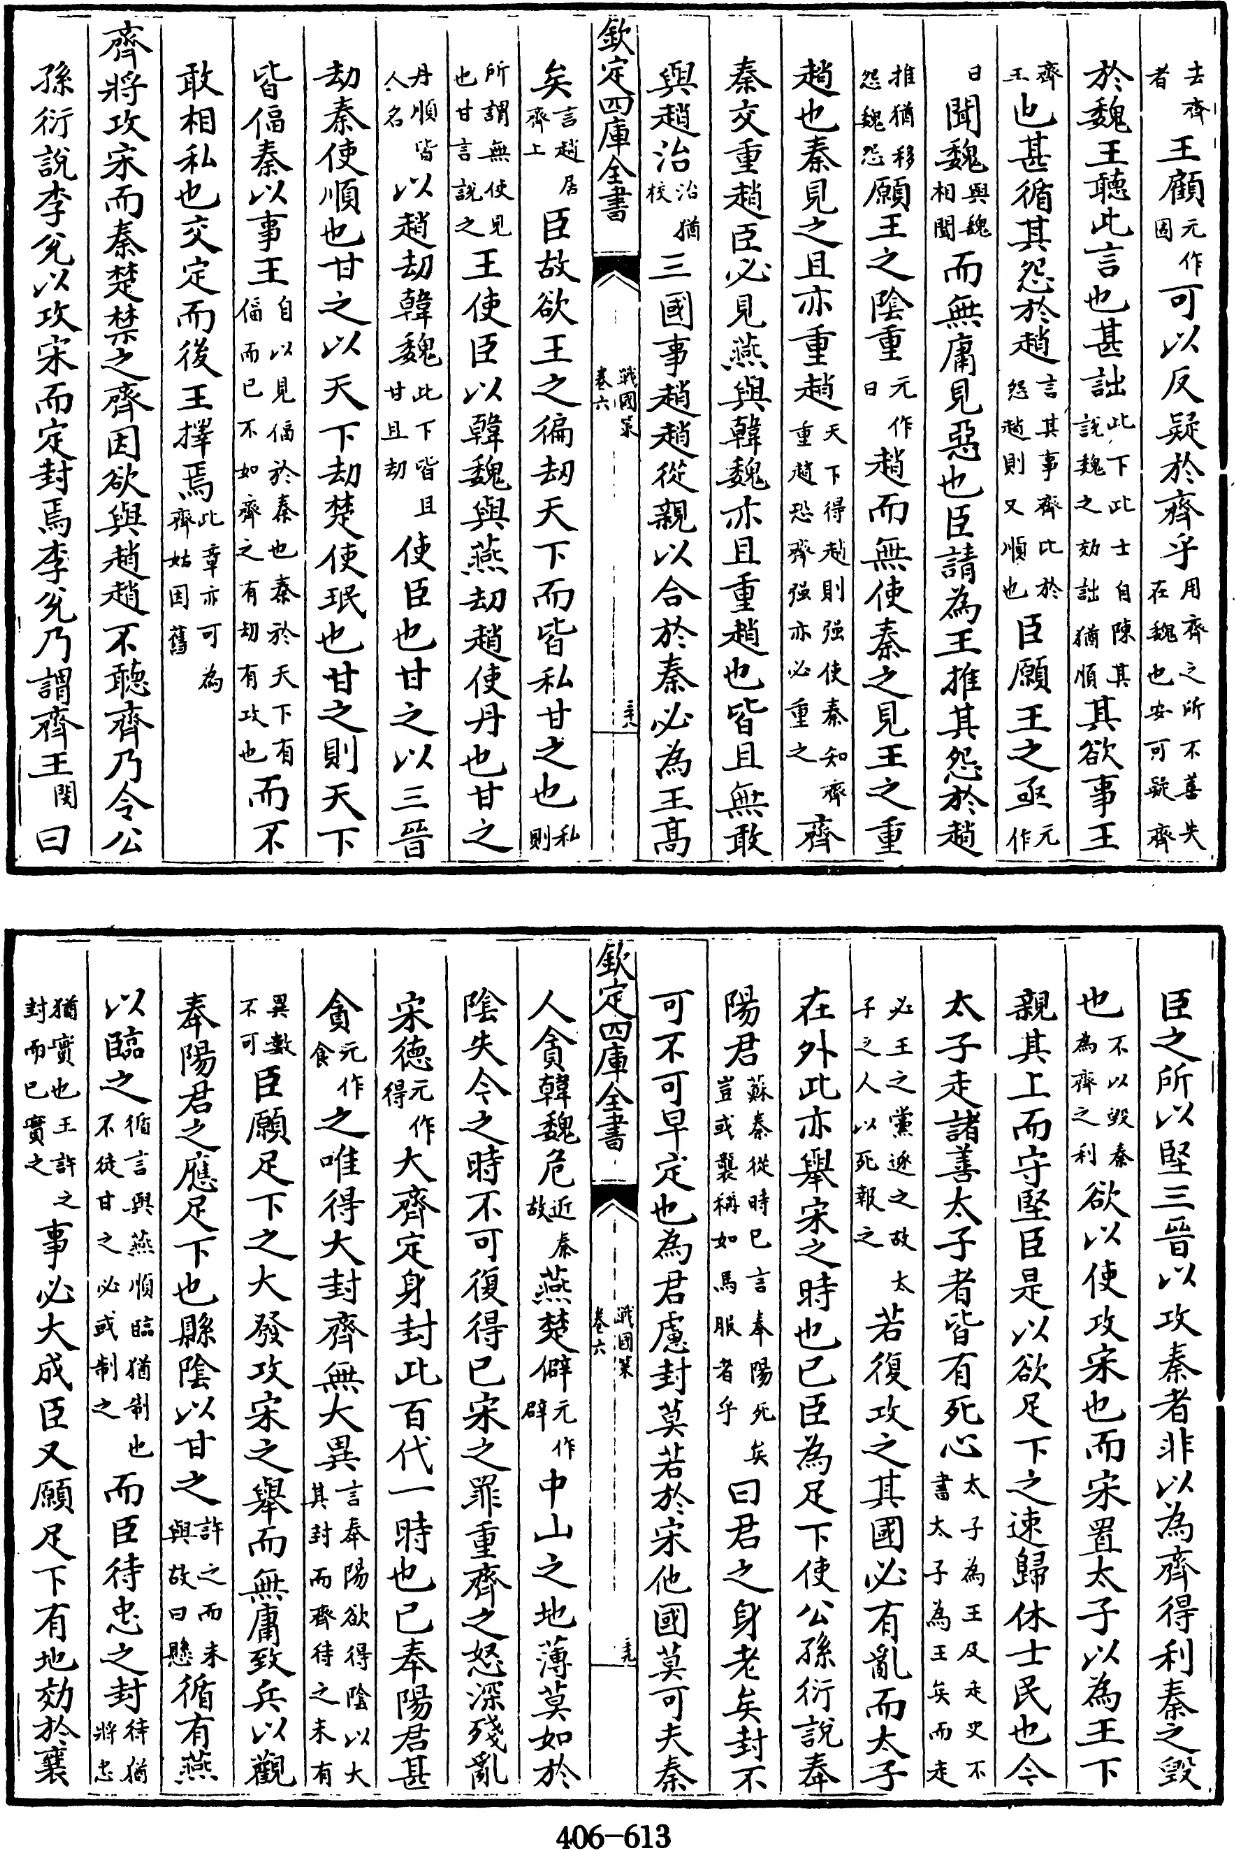 去齊者王顧元作因可以反疑於齊乎用齊之所不善失在魏也安可疑齊
於魏王聽此言也甚詘此下此士自陳其說魏之効詘猶順其欲事王
齊王也甚循其怨於趙言其事齊比於怨趙則又順也臣願王之亟元作
日聞魏與魏相聞而無庸見惡也臣請為王推其怨於趙
推猶移怨魏怨願王之陰重元作日趙而無使秦之見王之重
趙也秦見之且亦重趙天下得趙則强使秦知齊重趙恐齊强亦必重之齊
秦交重趙臣必見燕與韓魏亦且重趙也皆且無敢
與趙治治猶校三國事趙趙從親以合於秦必為王高
欽定四庫全書 戰國策卷六 三六
矣言趙居齊上臣故欲王之徧劫天下而皆私甘之也私則
所謂無使見也甘言說之王使臣以韓魏與燕劫趙使丹也甘之
丹順皆人名以趙劫韓魏此下皆且甘且劫使臣也甘之以三晉
劫秦使順也甘之以天下劫楚使珉也甘之則天下
皆偪秦以事王自以見偪於秦也秦於天下有偪而已不如齊之有劫有攻也而不
敢相私也交定而後王擇焉此章亦可為齊姑因舊
齊將攻宋而秦楚禁之齊因欲與趙趙不聽齊乃令公
孫衍說李兌以攻宋而定封焉李兌乃謂齊王閔曰
臣之所以堅三晉以攻秦者非以為齊得利秦之毀
也不以毀秦為齊之利欲以使攻宋也而宋置太子以為王下
親其上而守堅臣是以欲足下之速歸休士民也今
太子走諸善太子者皆有死心太子為王及走史不書太子為王矣而走
必王之黨逐之故太子之人以死報之若復攻之其國必有亂而太子
在外此亦舉宋之時也已臣為足下使公孫衍說奉
陽君蘇秦從時已言奉陽死矣豈或襲稱如馬服者乎曰君之身老矣封不
可不可早定也為君慮封莫若於宋他國莫可夫秦
欽定四庫全書 戰國策卷六 三九
人貪韓魏危近秦故燕楚僻元作辟中山之地薄莫如於
陰失今之時不可復得已宋之罪重齊之怒深殘亂
宋德元作得大齊定身封此百代一時也已奉陽君甚
貪元作食之唯得大封齊無大異言奉陽欲得陰以大其封而齊待之未有
異數不可臣願足下之大發攻宋之舉而無庸致兵以觀
奉陽君之應足下也縣陰以甘之許之而未與故曰懸循有燕
以臨之循言與燕順臨猶制也不徒甘之必或制之而臣待忠之封待猶將忠
猶實也王許之封而已實之事必大成臣又願足下有地効於襄
406-613